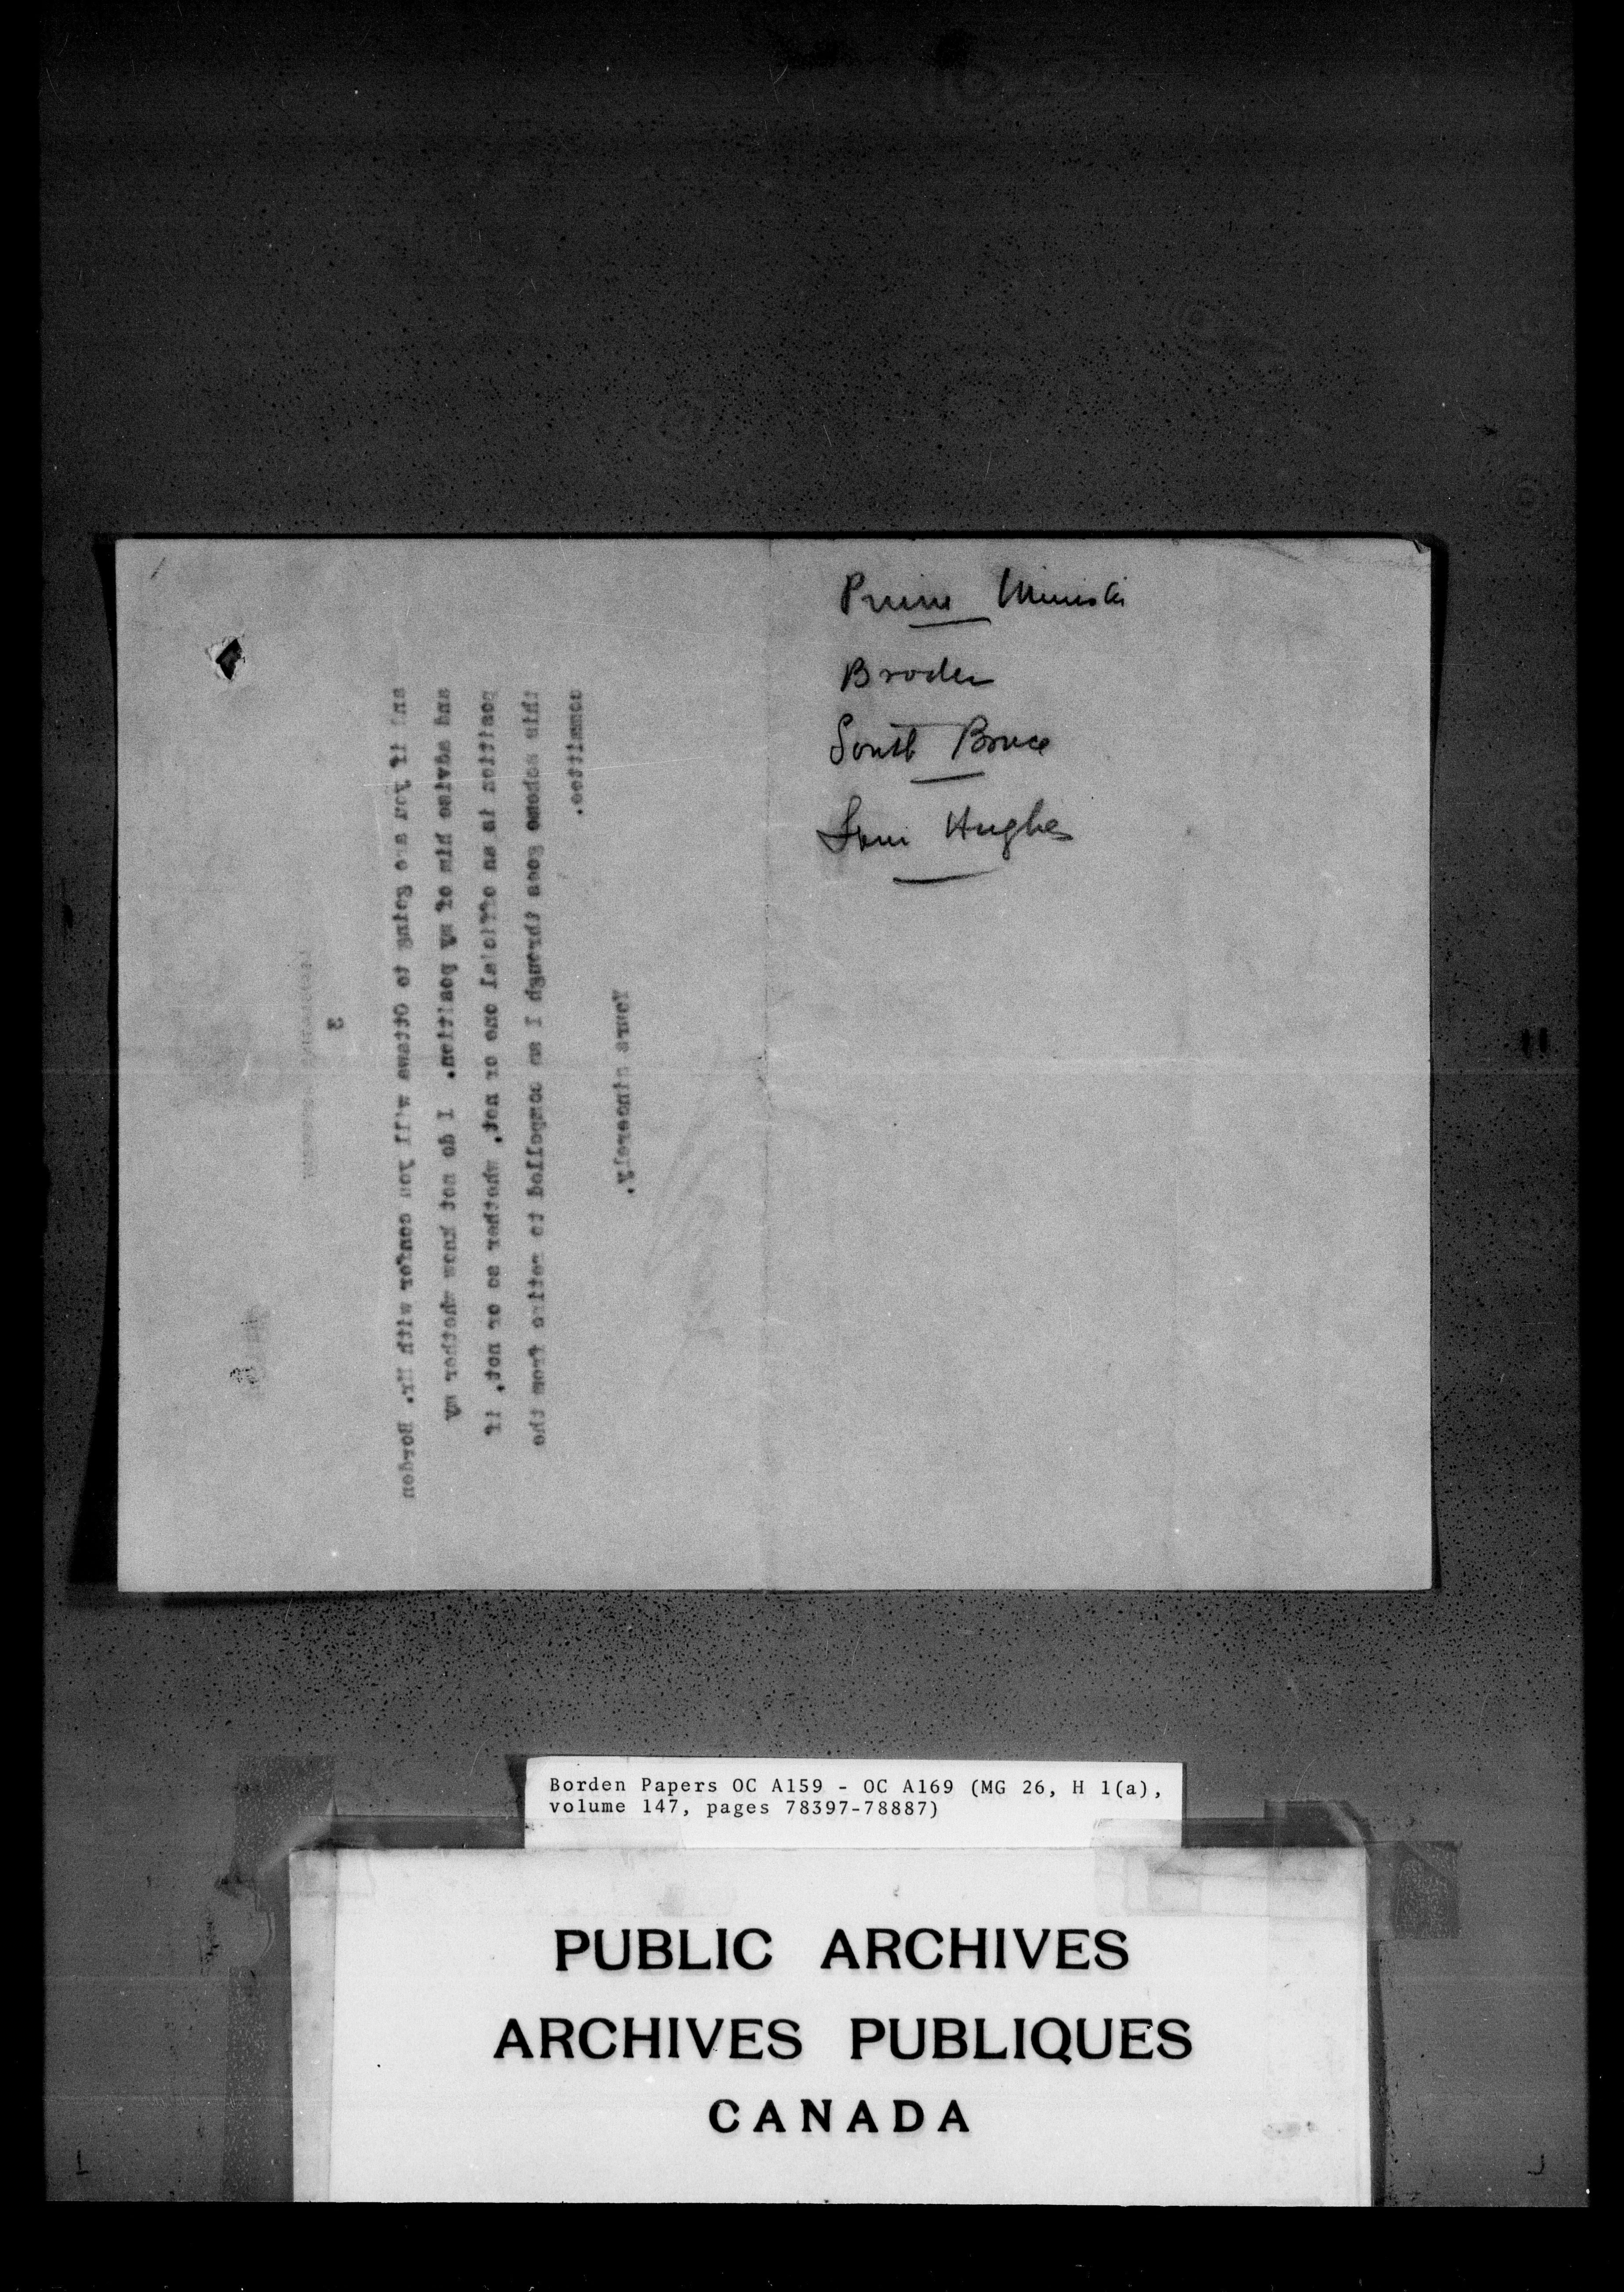 Prime Minister
Broder
South Bruce
Hughes
3
and if you are going to Ottawa will you confer with Mr. Borden
and advise him of my position. I do not know whether my
position is an official one or not, whether so or not, if
this scheme goes through I am compelled to retire from the
committee.
Yours sincerely,
Borden Papers OC A159 - OC A169 (MG 26, H 1(a),
volume 147, pages 78397-78887)
PUBLIC ARCHIVES
ARCHIVES PUBLIQUES
CANADA